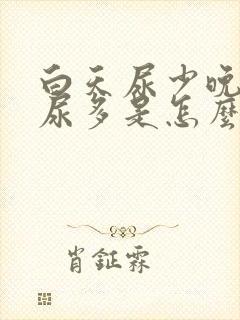 白天尿少晚
尿多是怎麼
肖鉦霖